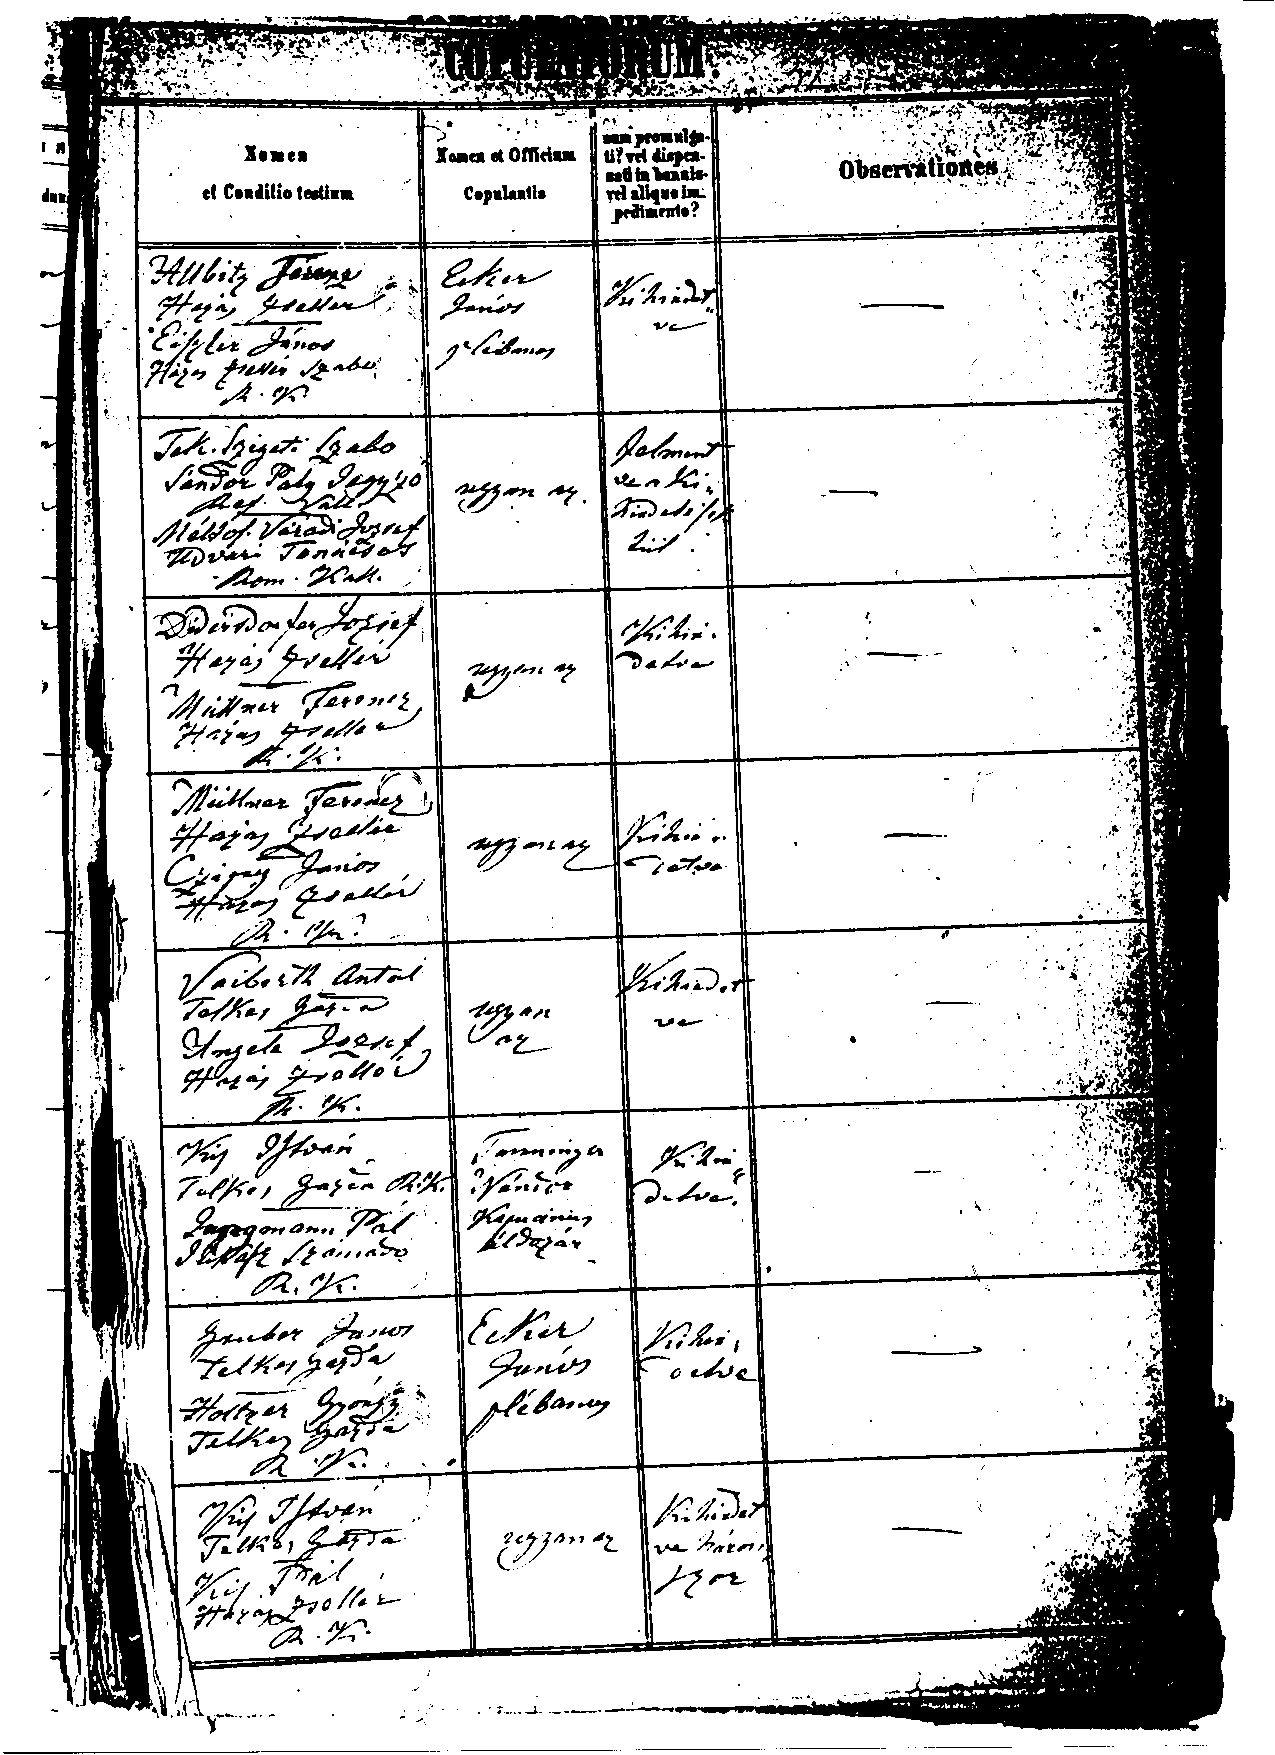 COPULATORUM.
Nomen
et Conditio testium
Nomen et Officium
Copulantis
num promulga-
ti? vel dispen-
sati in bannis
vel alique im-
pedimento?
Observationes
Ferenz
Hazas Zsellér
János
Hazas Zsellér Szabo
R. K.
Ecker
János
plébanos
Kihirdet
ve
Tek. Szigeti Szabo
Sándor Pály Jegyző
Ref. Vall.
Váradi Jozsef
Udvari Tanácsos
Rom. Kath.
ugyan az.
felment
ve a Ki-
hirdetés
tül
Jozsef
Hazas Zsellér
Müllner Ferencz
Hazas Zsellér
R. K.
ugyan az
Kihir-
detve
Müllner Ferencz
Hazas Zsellér
János
Hazas Zsellér
R. K.
ugyan az
Kihir-
detve
Antal
Telkes Gazda
Jozsef
Hazas Zsellér
R. K.
ugyan
az
Kihirdet
ve
Kis István
Telkes Gazda R.K.
Pál
R. K.
Nándor
Kapucinus
áldozár
Kihir-
detve
Gruber János
Telkes Gazda
Holtzer György
Telkes Gazda
R. K.
Ecker
János
plébanos
Kihir-
detve
Kis István
Telkes Gazda
Kis Pál
Hazas Zsellér
R. K.
ugyan az
Kihirdet
ve három
szor